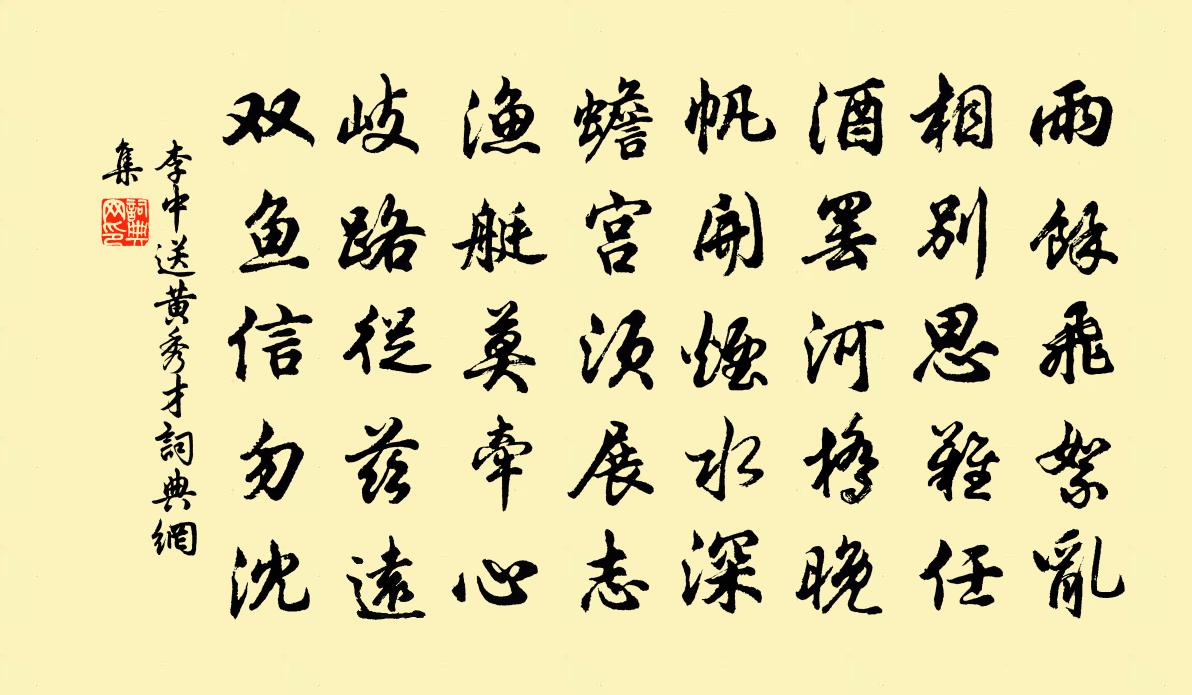 雨餘飛絮亂
相別思難任
酒罢河橋晚
帆開煙水深
蟾宮須展志
漁艇莫牽心
歧路從茲遠
双魚信勿沈
李中送黃秀才詞典網
集
詞典网印